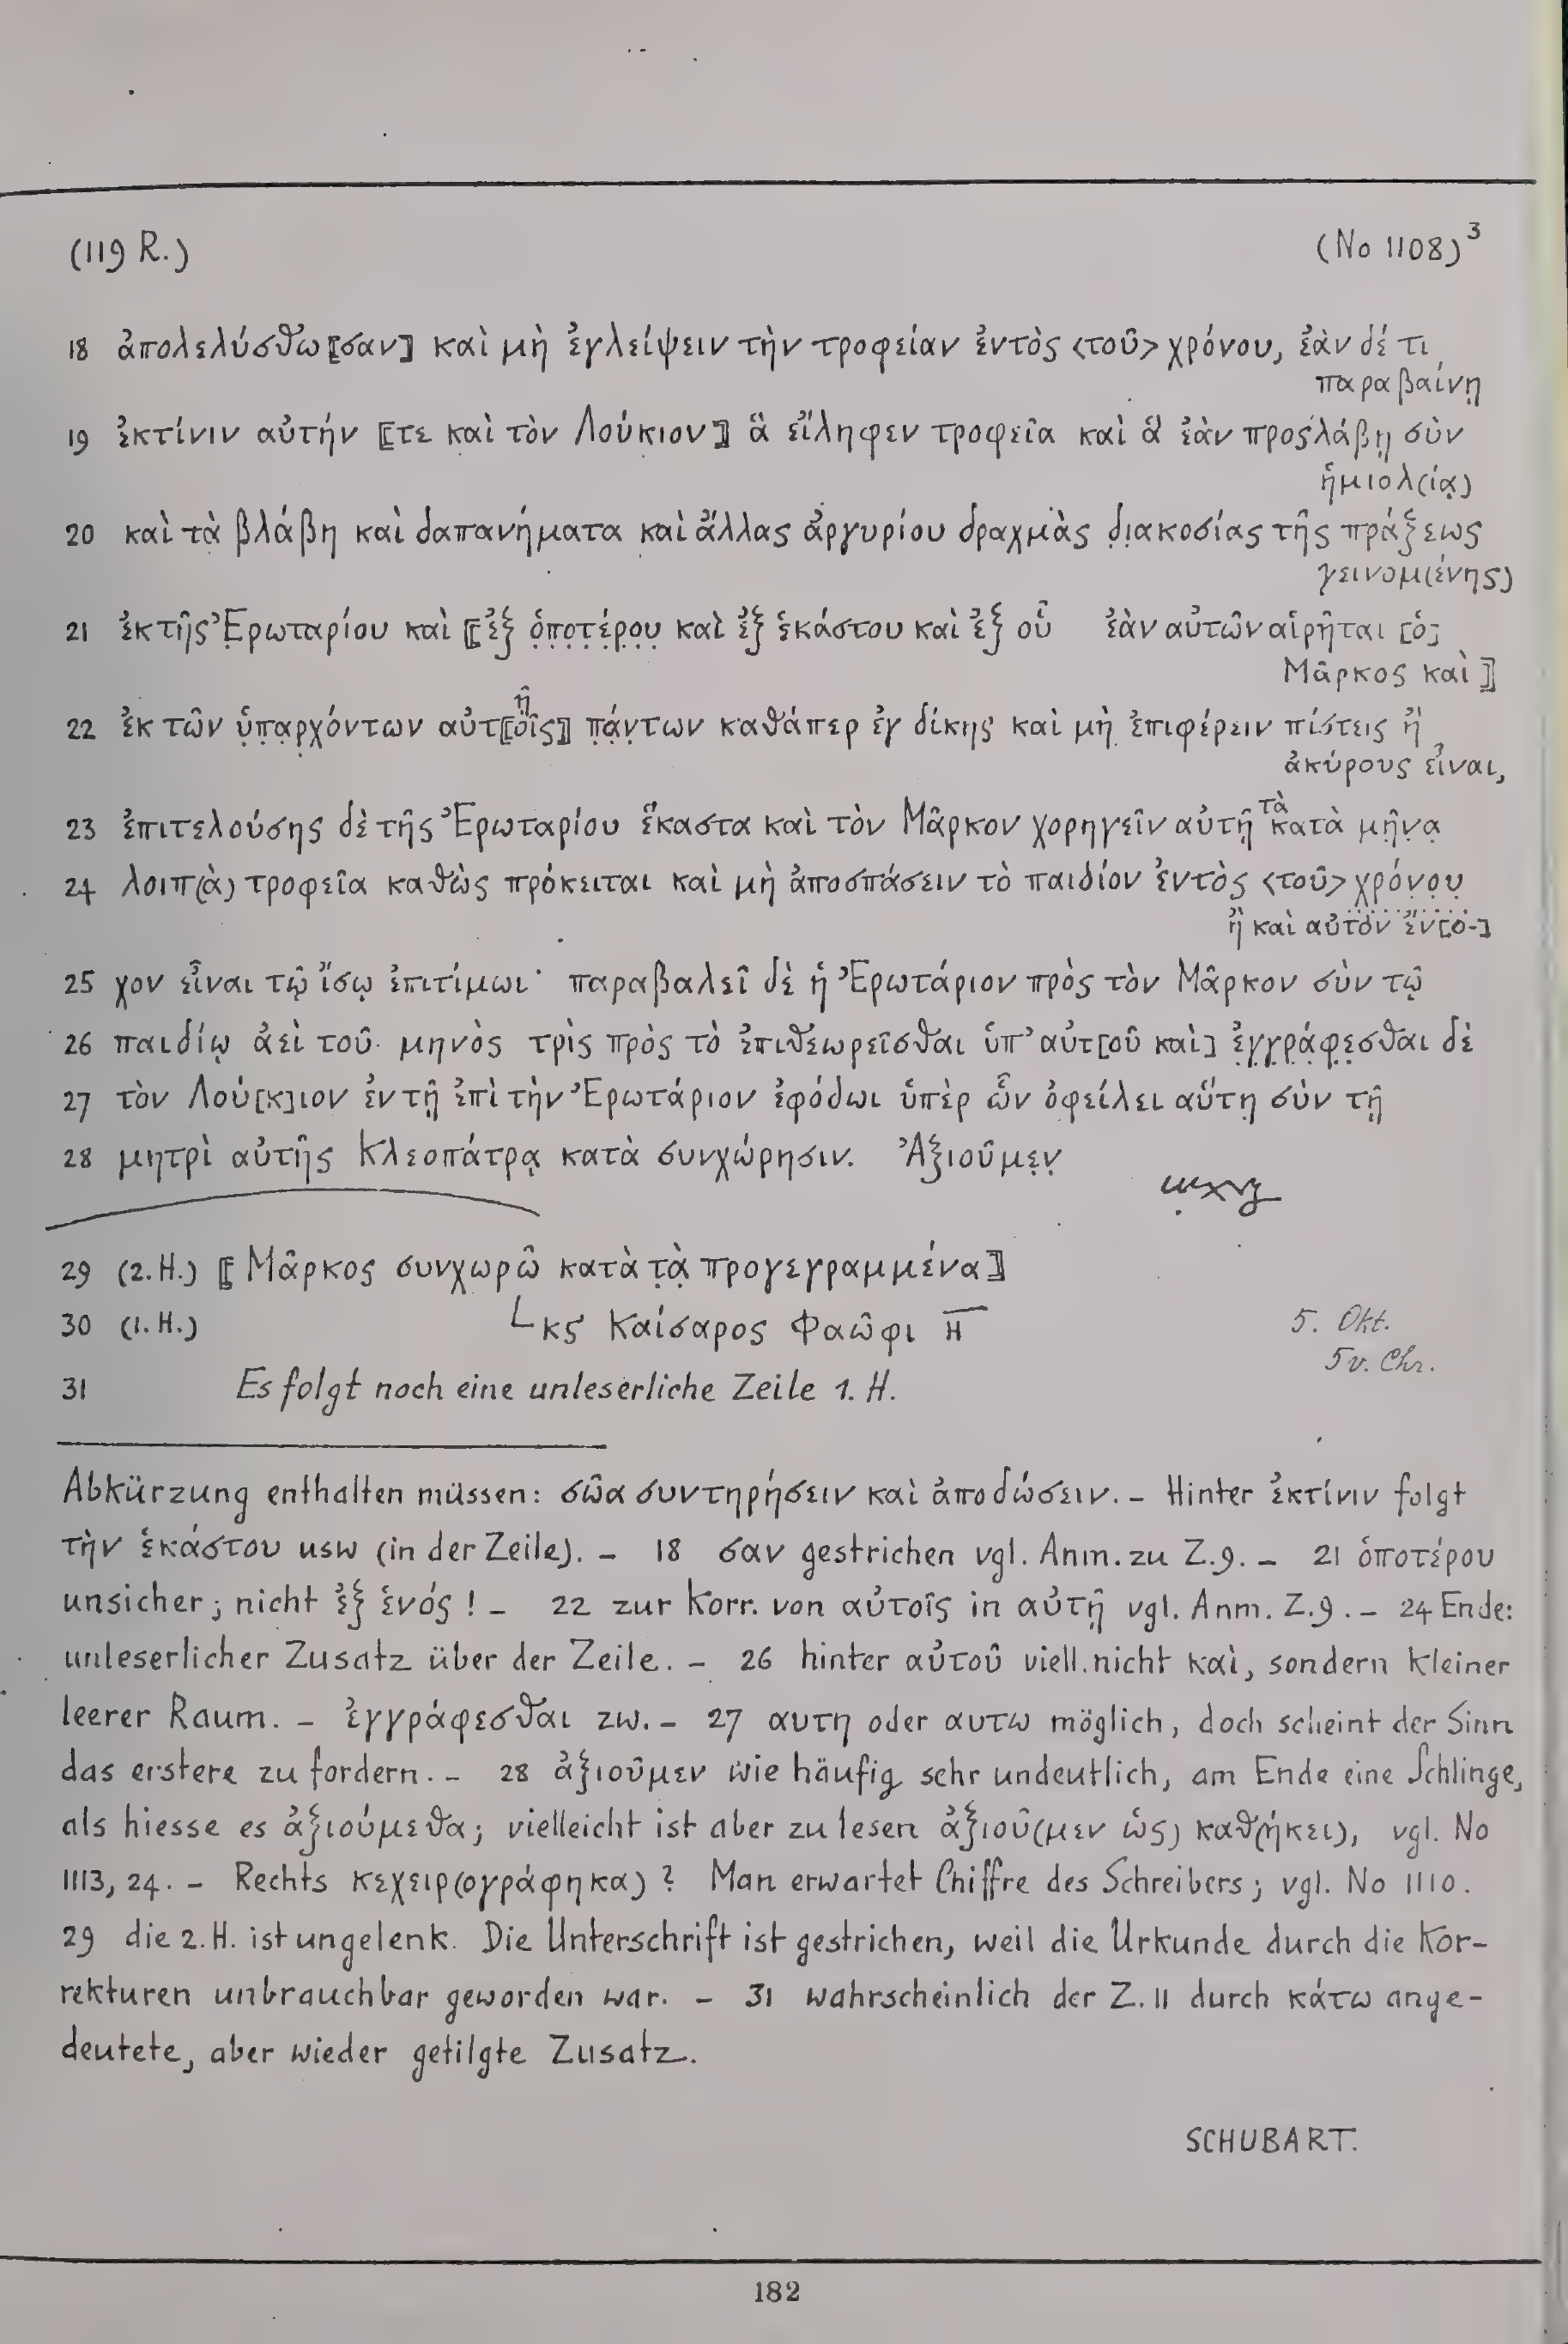 (119 R.) (No 1108)³
18 ἀπολελύσθω⟦σαν⟧ καὶ μὴ ἐγλείψειν τὴν τροφείαν ἐντὸς <τοῦ> χρόνου, ἐὰν δέ τι
παραβαίνῃ
19 ἐκτίνιν αὐτήν ⟦τε καὶ τὸν Λούκιον⟧ ἃ εἴληφεν τροφεῖα καὶ ἃ ἐὰν προςλάβῃ σὺν
ἡμιολ(ίᾳ)
20 καὶ τὰ βλάβη καὶ δαπανήματα καὶ ἄλλας ἀργυρίου δραχμὰς δ̣ι̣ακοσίας τῆς πράξεως
γεινομ(ένης)
21 ἐκ τῆς Ἐ̣ρωταρίου καὶ ⟦ἐξ ὁ̣π̣ο̣τ̣έ̣ρ̣ο̣υ̣ καὶ ἐξ ἑκάστου καὶ ἐξ οὗ ἐὰν αὐτῶν αἱρῆται [ὁ]
Μᾶρκος καὶ⟧
22 ἐκ τῶν ὑ̣π̣α̣ρ̣χ̣όντων αὐτ⟦οῖς⟧ῆ π̣ά̣ν̣των καθάπερ ἐγ δίκης καὶ μὴ ἐπιφέρειν πίστεις ἢ
ἀκύρους εἶναι,
23 ἐπιτελούσης δὲ τῆς Ἐρωταρίου ἕκαστα καὶ τὸν Μᾶρκον χορηγεῖν αὐτῇ τὰ κατὰ μῆ̣ν̣α̣
24 λοιπ(ὰ) τροφεῖα καθὼς πρόκειται καὶ μὴ ἀποσπάσειν τὸ παιδίον ἐντὸς <τοῦ> χρό̣ν̣ο̣υ̣
ἢ καὶ αὐτὸν ἔν[ο-]
25 χον εἶναι τῷ ἴσῳ ἐπιτίμωι· παραβαλεῖ δὲ ἡ Ἐρωτάριον πρὸς τὸν Μᾶρκον σὺν τῷ
26 παιδίῳ ἀεὶ τοῦ μηνὸς τρὶς πρὸς τὸ ἐπιθεωρεῖσθαι ὑπ’ αὐτ[οῦ καὶ] ἐ̣γ̣γ̣ρ̣ά̣φ̣ε̣σθαι δὲ
27 τὸν Λού[κ]ιον ἐν τῇ ἐπὶ τὴν Ἐρωτάριον ἐφόδωι ὑπὲρ ὧν ὀφείλει αὕτη σὺν τῇ
28 μητρὶ αὐτῆς Κλεοπάτρᾳ κατὰ συνχώρησιν. Ἀξιοῦμε̣ν̣
29 (2. H.) ⟦Μᾶρκος συνχωρῶ κατὰ τ̣ὰ̣ προγεγραμμένα⟧
30 (1. H.) ∟κς Καίσαρος Φαῶφι η̅ 5. Okt.
5 v. Chr.
31 Es folgt noch eine unleserliche Zeile 1. H.
Abkürzung enthalten müssen: σῶα συντηρήσειν καὶ ἀποδώσειν. – Hinter ἐκτίνιν folgt
τὴν ἑκάστου usw (in der Zeile). – 18 σαν gestrichen vgl. Anm. zu Z. 9. – 21 ὁποτέρου
unsicher; nicht ἐξ ἑνός! – 22 zur Korr. von αὐτοῖς in αὐτῇ vgl. Anm. Z. 9. – 24 Ende:
unleserlicher Zusatz über der Zeile. – 26 hinter αὐτοῦ viell. nicht καὶ, sondern kleiner
leerer Raum. – ἐγγράφεσθαι zw. – 27 αυτη oder αυτω möglich, doch scheint der Sinn
das erstere zu fordern. – 28 ἀξιοῦμεν wie häufig sehr undeutlich, am Ende eine Schlinge,
als hiesse es ἀξιούμεθα; vielleicht ist aber zu lesen ἀξιοῦ(μεν ὡς) καθ(ήκει), vgl. No
1113, 24. – Rechts κεχειρ(ογράφηκα)? Man erwartet Chiffre des Schreibers; vgl. No 1110.
29 die 2. H. ist ungelenk. Die Unterschrift ist gestrichen, weil die Urkunde durch die Kor-
rekturen unbrauchbar geworden war. – 31 wahrscheinlich der Z. 11 durch κάτω ange-
deutete, aber wieder getilgte Zusatz.
SCHUBART.
182